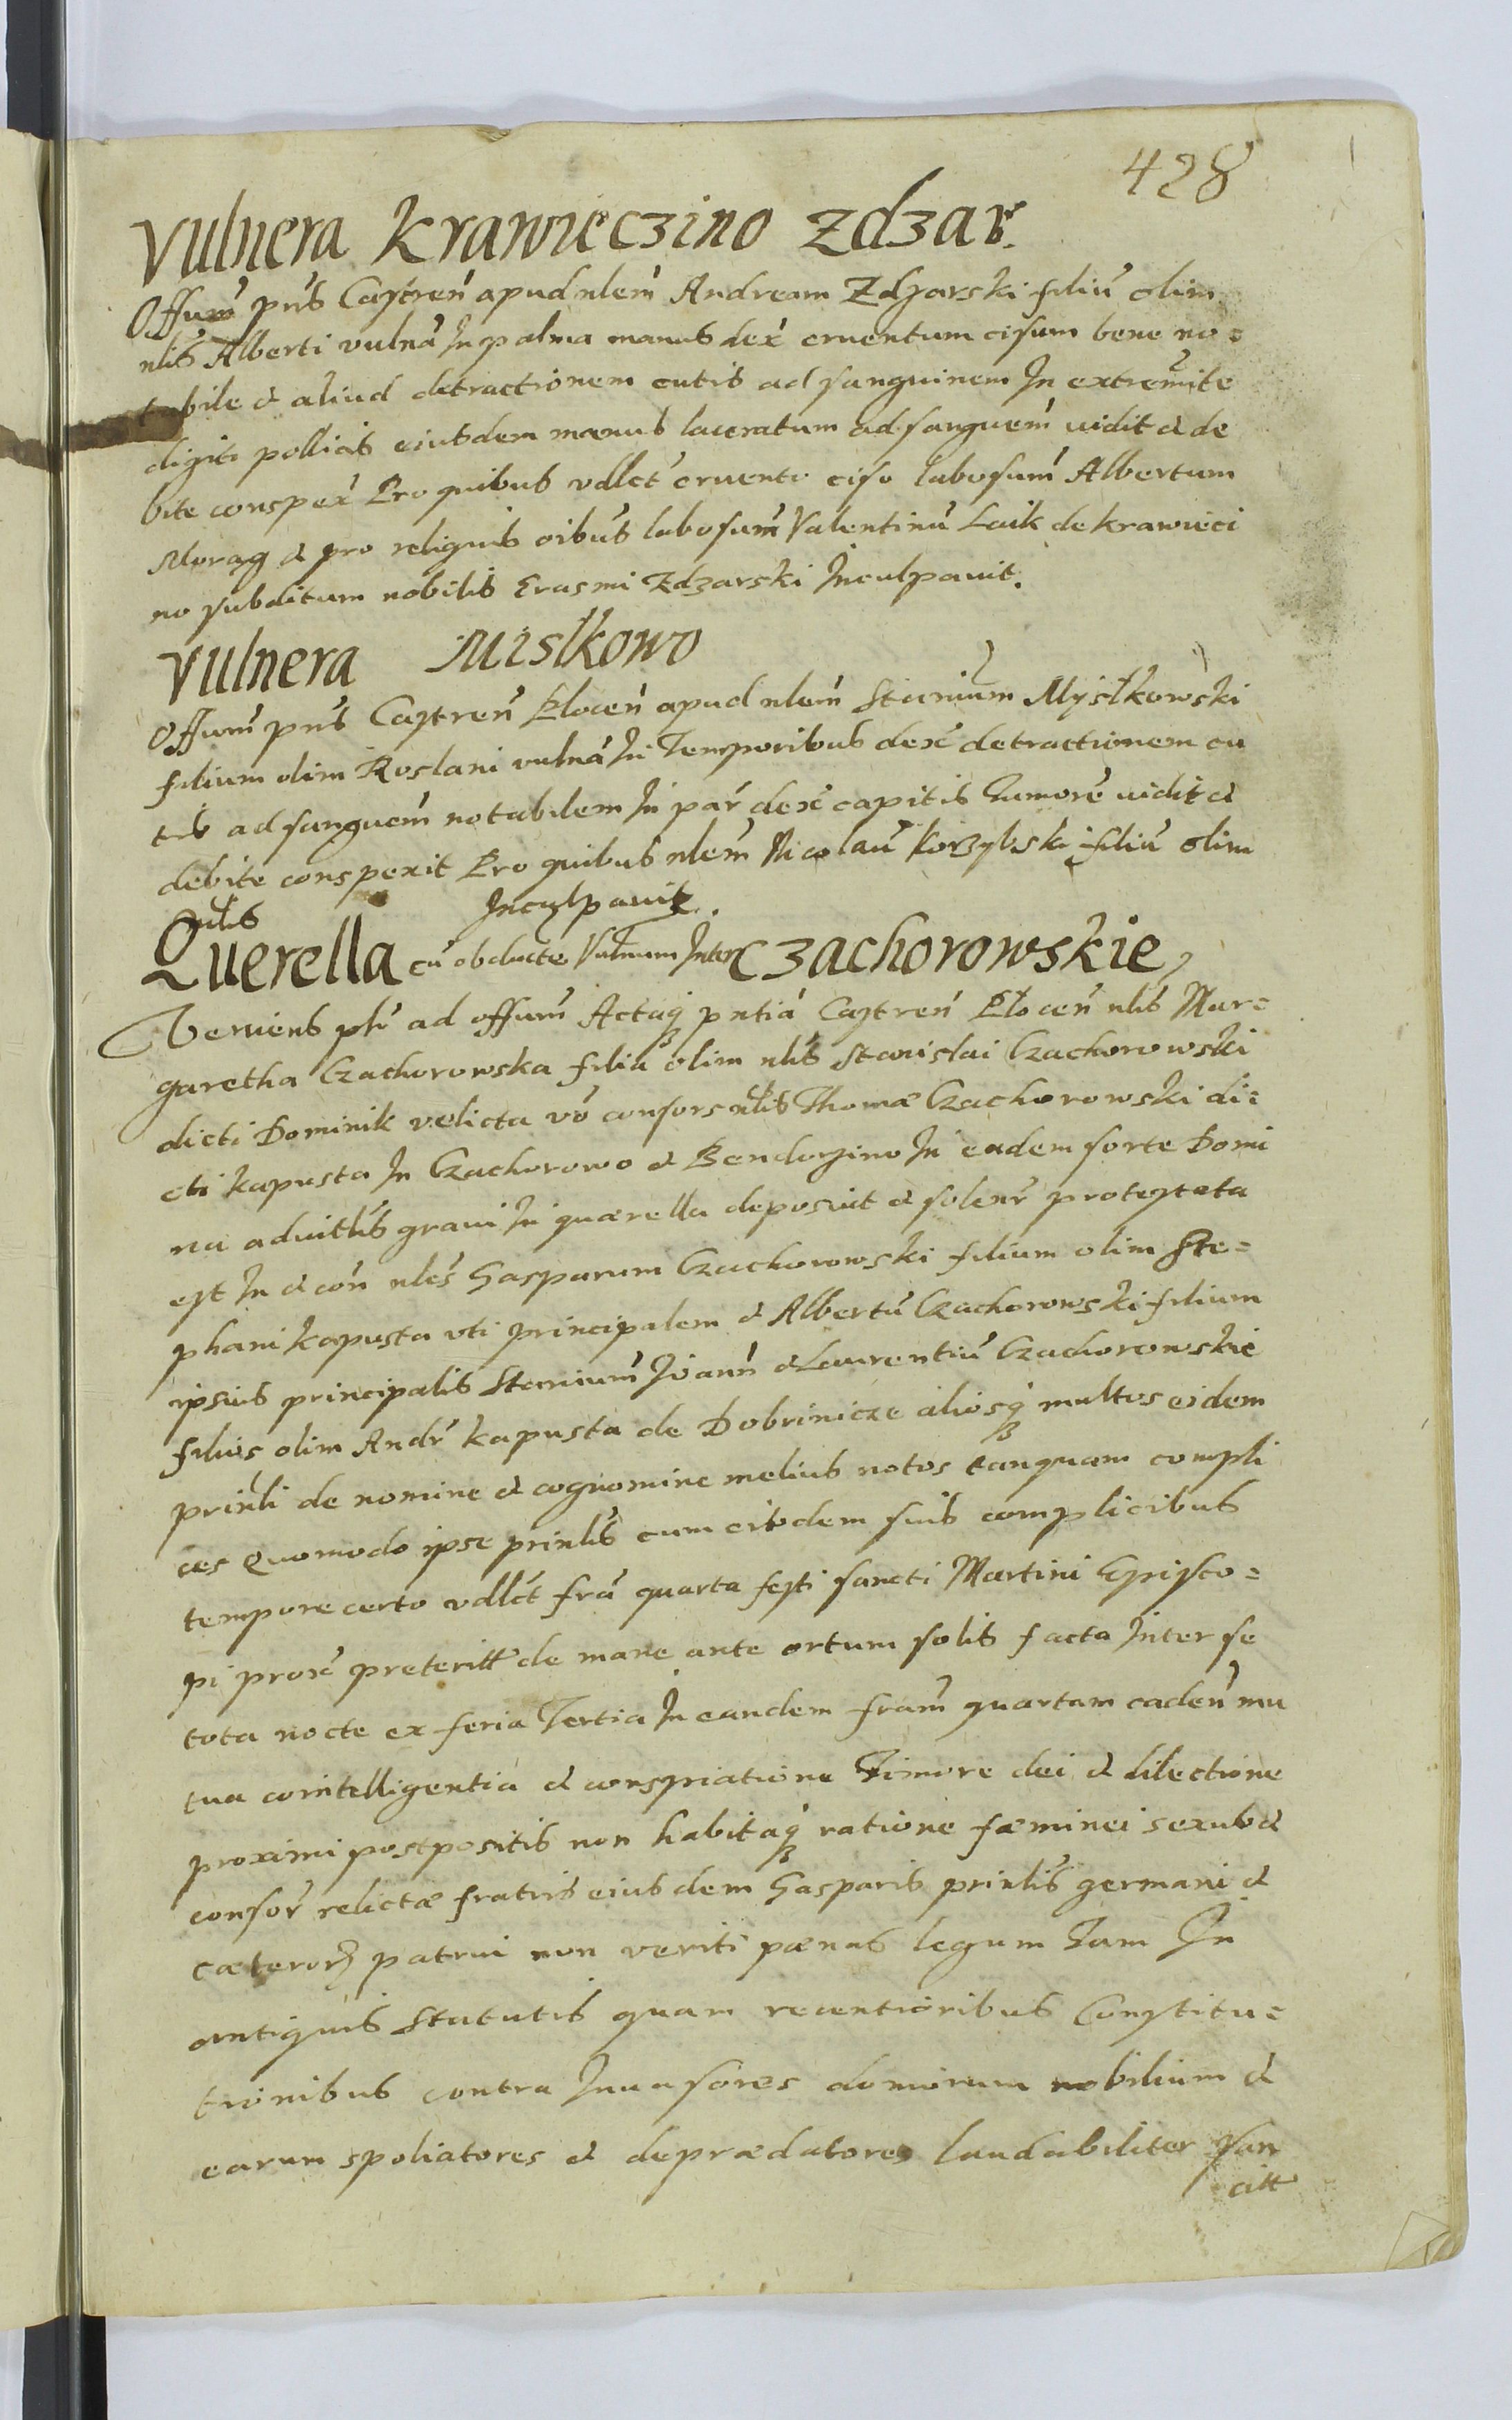 428
Vulnera Krawieczino Zdzar.
Offum pns Castren apud nlem Andream Zdzarski filiu olim
nlis Alberti vulna In palma manus dex cruentum cisum bene no=
tabile & aliud detractionem cutis ad sanguinem In extremite
digiti pollicis eiusdem manus laceratum ad sanguem vidit & de
bite conspex Pro quibus vdlct cruento ciso labosum Albertum
Morag & pro reliquis oibus labosum Valentinu Laik de Krawieci
no subditum nobilis Erasmi Zdzarski Inculpauit.
Vulnera Mislkowo
Offum pns Castren Plocen apud nlem Stanium Myslkowski
filium olim Roslani vulna In Temporibus dex detractionem cu
tis ad sanguem notabilem In par dex capitis tumore vidit &
debite conspexit Pro quibus nlem Nicolau Korzybski filiu olim
nlis Inculpauit.
Querella cu obducte Vulnum Inter Czachorowskie
Veniens plr ad offum Actaq pntia Castren Plocen nlis Mar=
garetha Czachorowska filia olim nlis Stanislai Czachorowski
dicti Dominik relicta vo consors nlis Thomæ Czachorowski di=
cti Kapusta In Czachorowo & Bendorzino In eadem sorte Domi
na aduitlis graui In quærella deposuit & solenr protestata
est In & con nles Gasparum Czachorowski filium olim Ste=
phani Kapusta vti principalem & Albertu Czachorowski filium
ipsius principalis Stanium Ioann & Laurentiu Czachorowskie
filios olim Andr Kapusta de Dobrinicze aliosq multos eidem
prinli de nomine & cognomine melius notos tanquam compli
ces Quomodo ipse prinlis cum eisdem suis complicibus
tempore certo vdlct fra quarta festi sancti Martini Episco=
pi prox preteritt de mane ante ortum solis facta Inter se
tota nocte ex feria Tertia In eandem fram quartam caden mu
tua cointelligentia & conspiatione Timore dei & dilectione
proximi postpositis non habitaq ratione fæminei sexus &
consor relictæ fratris eiusdem Gasparis prinlis germani &
cæteror patrui non veriti pænas legum Tam In
antiquis Statutis quam recentioribus Constitu=
tionibus contra Inuasores domorum nobilium &
earum spoliatores & deprædatores laudabiliter San
citt